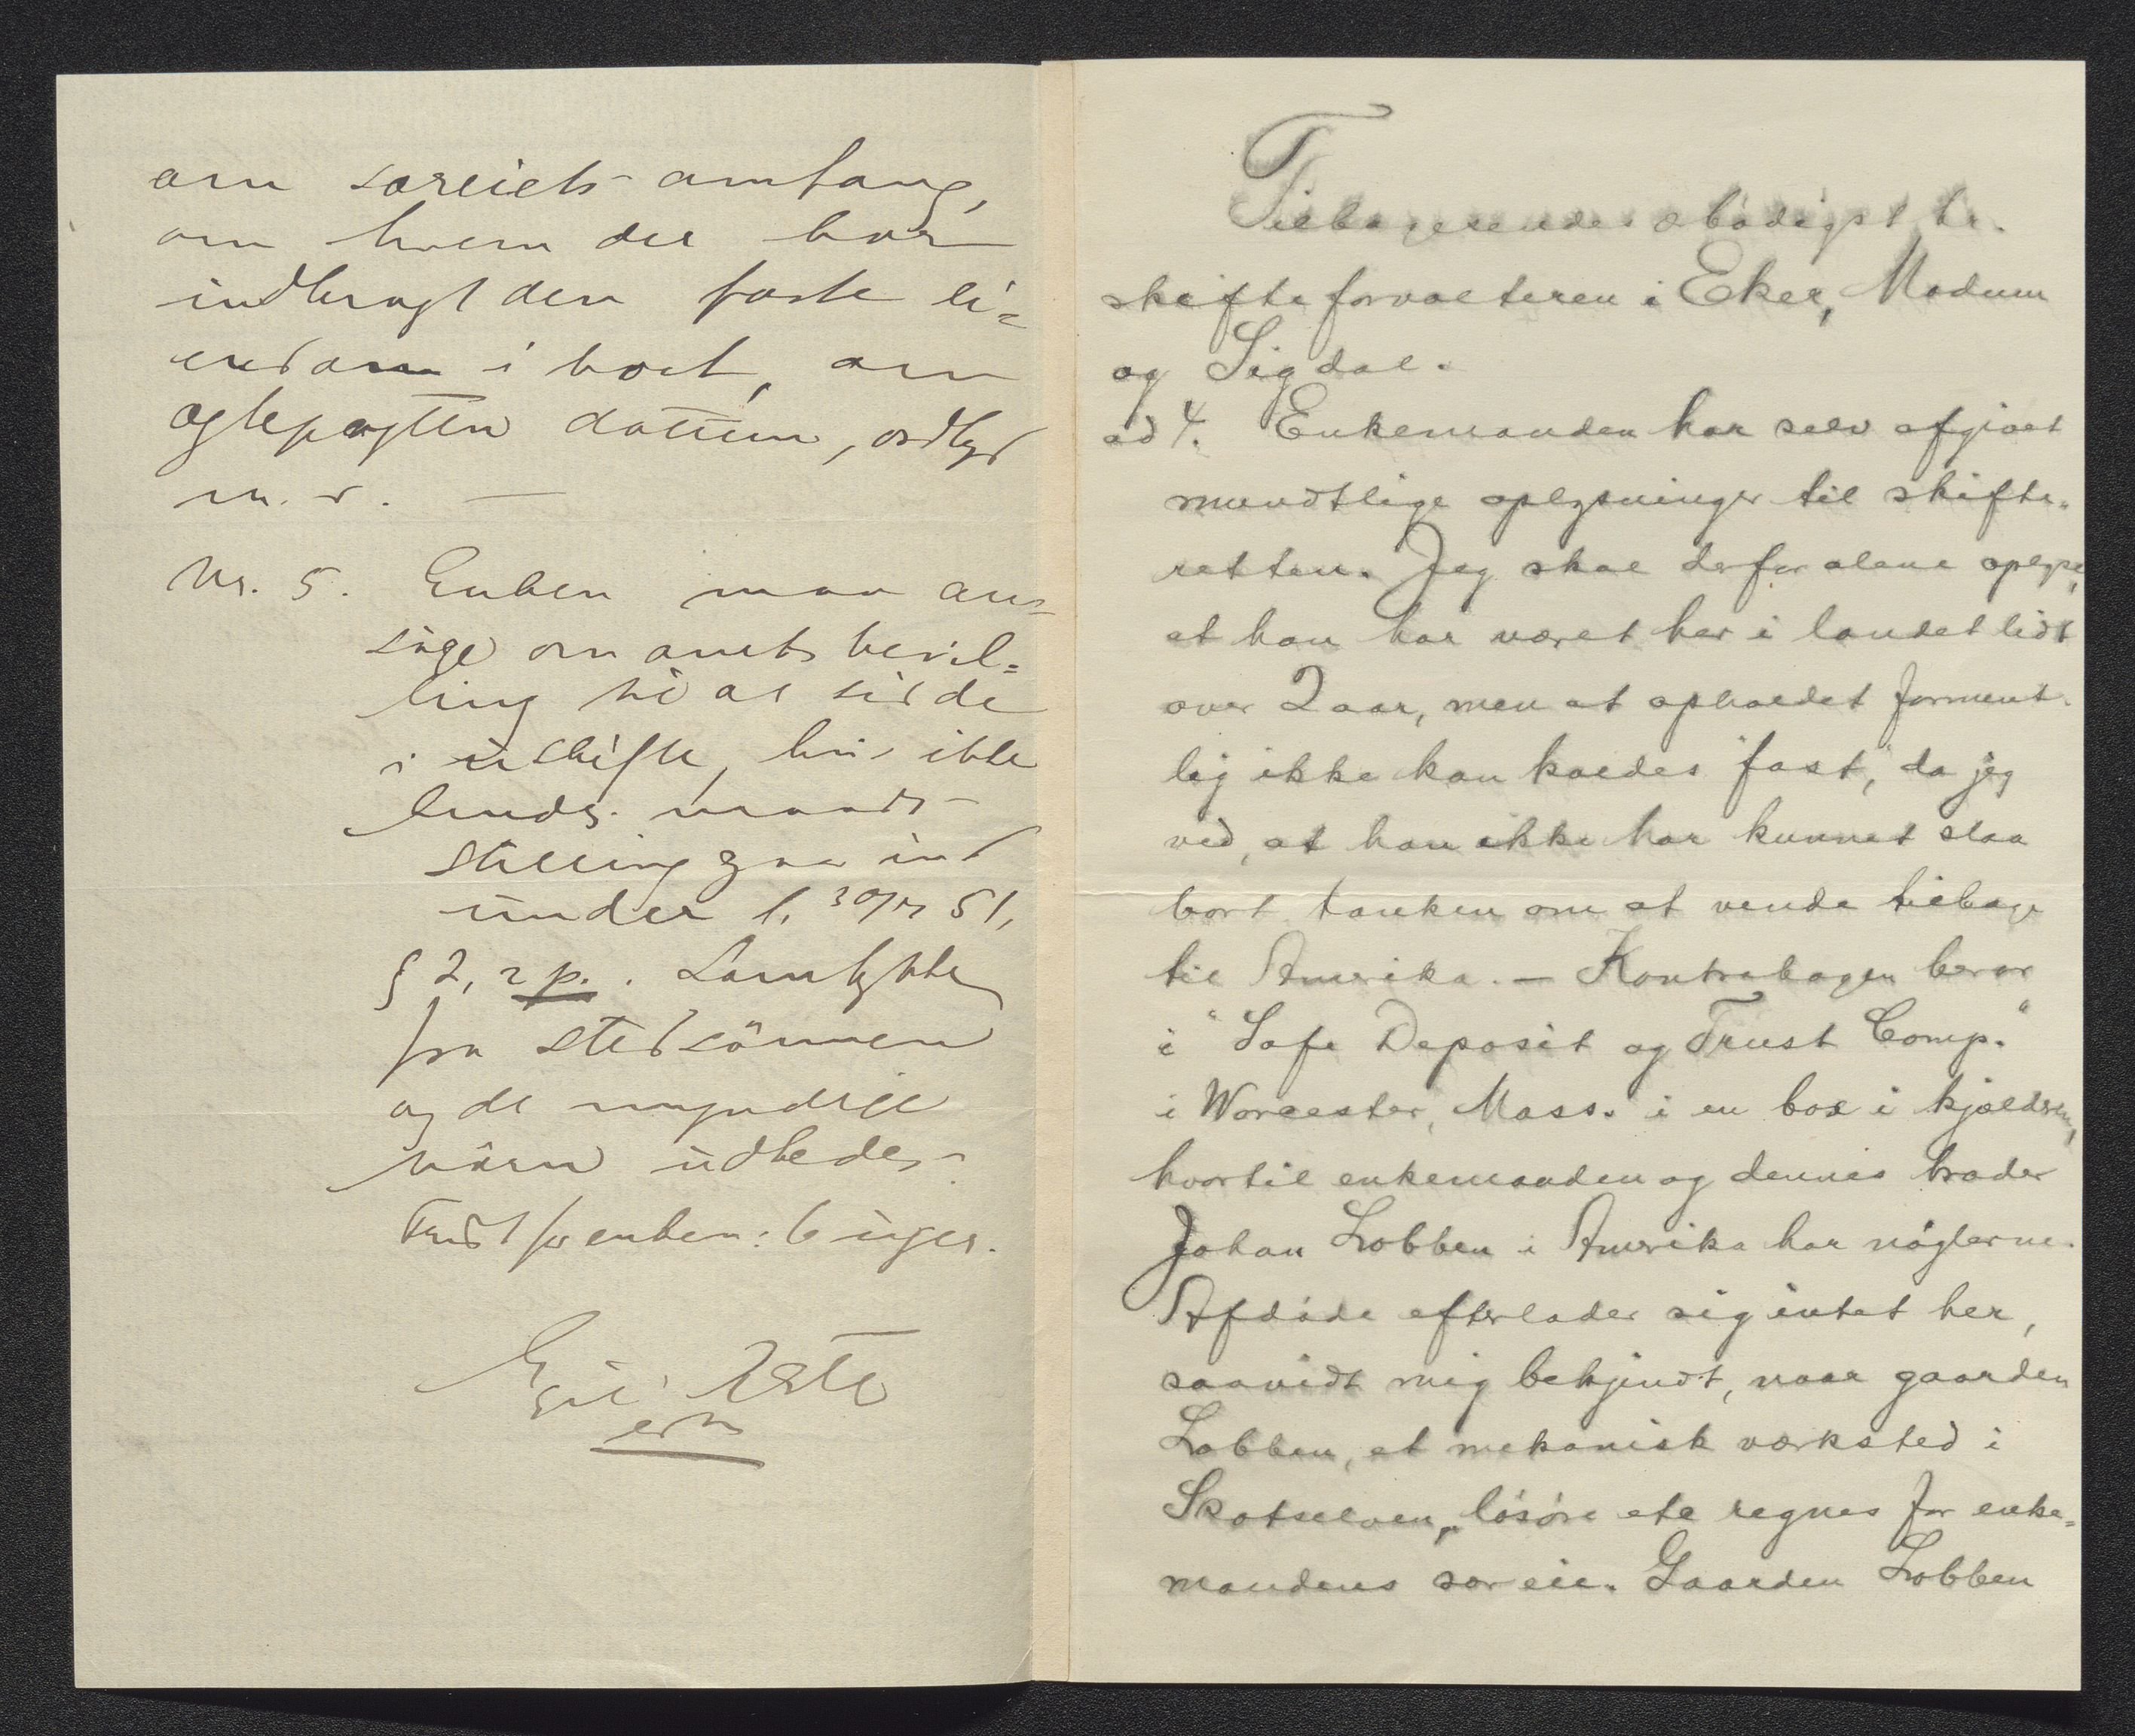 om særeiets omfang,
om hvem der har
indbragt den faste ei-
endom i boet, om
ægtepagten datum, ordlyd
m. v. —
Nr. 5. Enken maa an-
søge om amts bevil-
ling til at sidde
i uskifte, hvis ikke
hendes mands
stilling gaar ind
under l. 30/7 51,
§ 2, 2 p.. Samtykke
fra stedsönnen
og de myndige
börn udbedes.
Frist for enken: 6 uger.
Tilbagesendes ærbødigst hr.
skifteforvalteren i Eker, Modum
og Sigdal.
ad 4. Enkemanden har selv afgivet
mundtlige oplysninger til skifte-
retten. Jeg skal derfor alene oplyse,
at han har været her i landet lidt
over 2 aar, men at opholdet forment-
lig ikke kan kaldes "fast," da jeg
ved, at han ikke har kunnet slaa
bort tanken om at vende tilbage
til Amerika. — Kontrabogen beror
i "Safe Deposit og Trust Comp."
i Worcester, Mass. i en box i kjælderen,
hvortil enkemanden og dennes broder
Johan Lobben i Amerika har nøglerne.
Afdøde efterlader sig intet her,
saavidt mig bekjendt, naar gaarden
Lobben, et mekanisk værksted i
Skotselven, løsøre etc regnes for enke-
mandens særeie. Gaarden Lobben